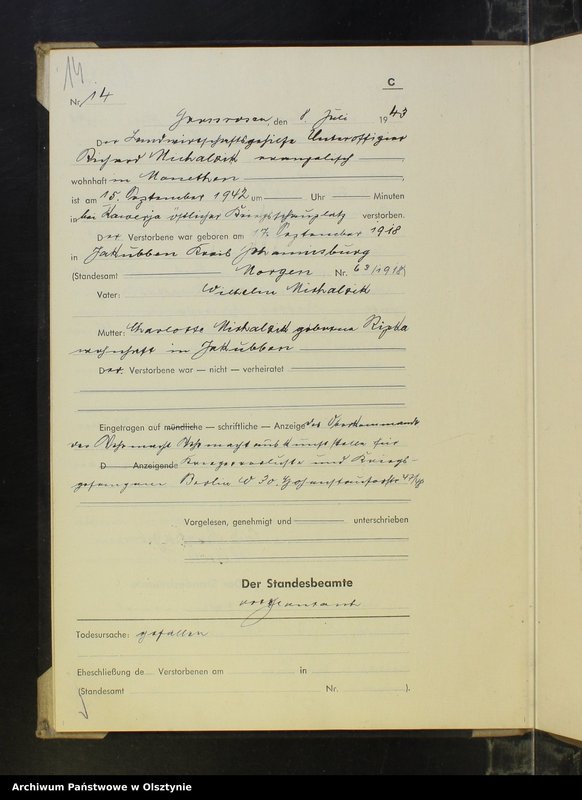 14
C
Nr. 14
Grossrosen, den 8. Juli 1943
Der Landwirtschaftsgehilfe Unteroffizier
Richard Michalzik evangelisch
wohnhaft in Monethen
ist am 15. September 1942 um Uhr Minuten
in bei östlicher Kriegsschauplatz verstorben.
Der Verstorbene war geboren am 17. September 1918
in Jakubben Kreis Johannisburg
(Standesamt Morgen Nr. 63/1918)
Vater: Wilhelm Michalzik
Mutter: Charlotte Michalzik geborene
wohnhaft in Jakubben
Der Verstorbene war — nicht — verheiratet
Eingetragen auf mündliche — schriftliche — Anzeige des Oberkommandos
der Wehrmacht Wehrmachtauskunftstelle für
D Anzeigende Kriegerverluste und Kriegs-
gefangene Berlin W 30. Hohenstaufenstr 47/48
Vorgelesen, genehmigt und unterschrieben
Der Standesbeamte
Todesursache: gefallen
Eheschließung de Verstorbenen am in
(Standesamt Nr. ).
Archiwum Państwowe w Olsztynie